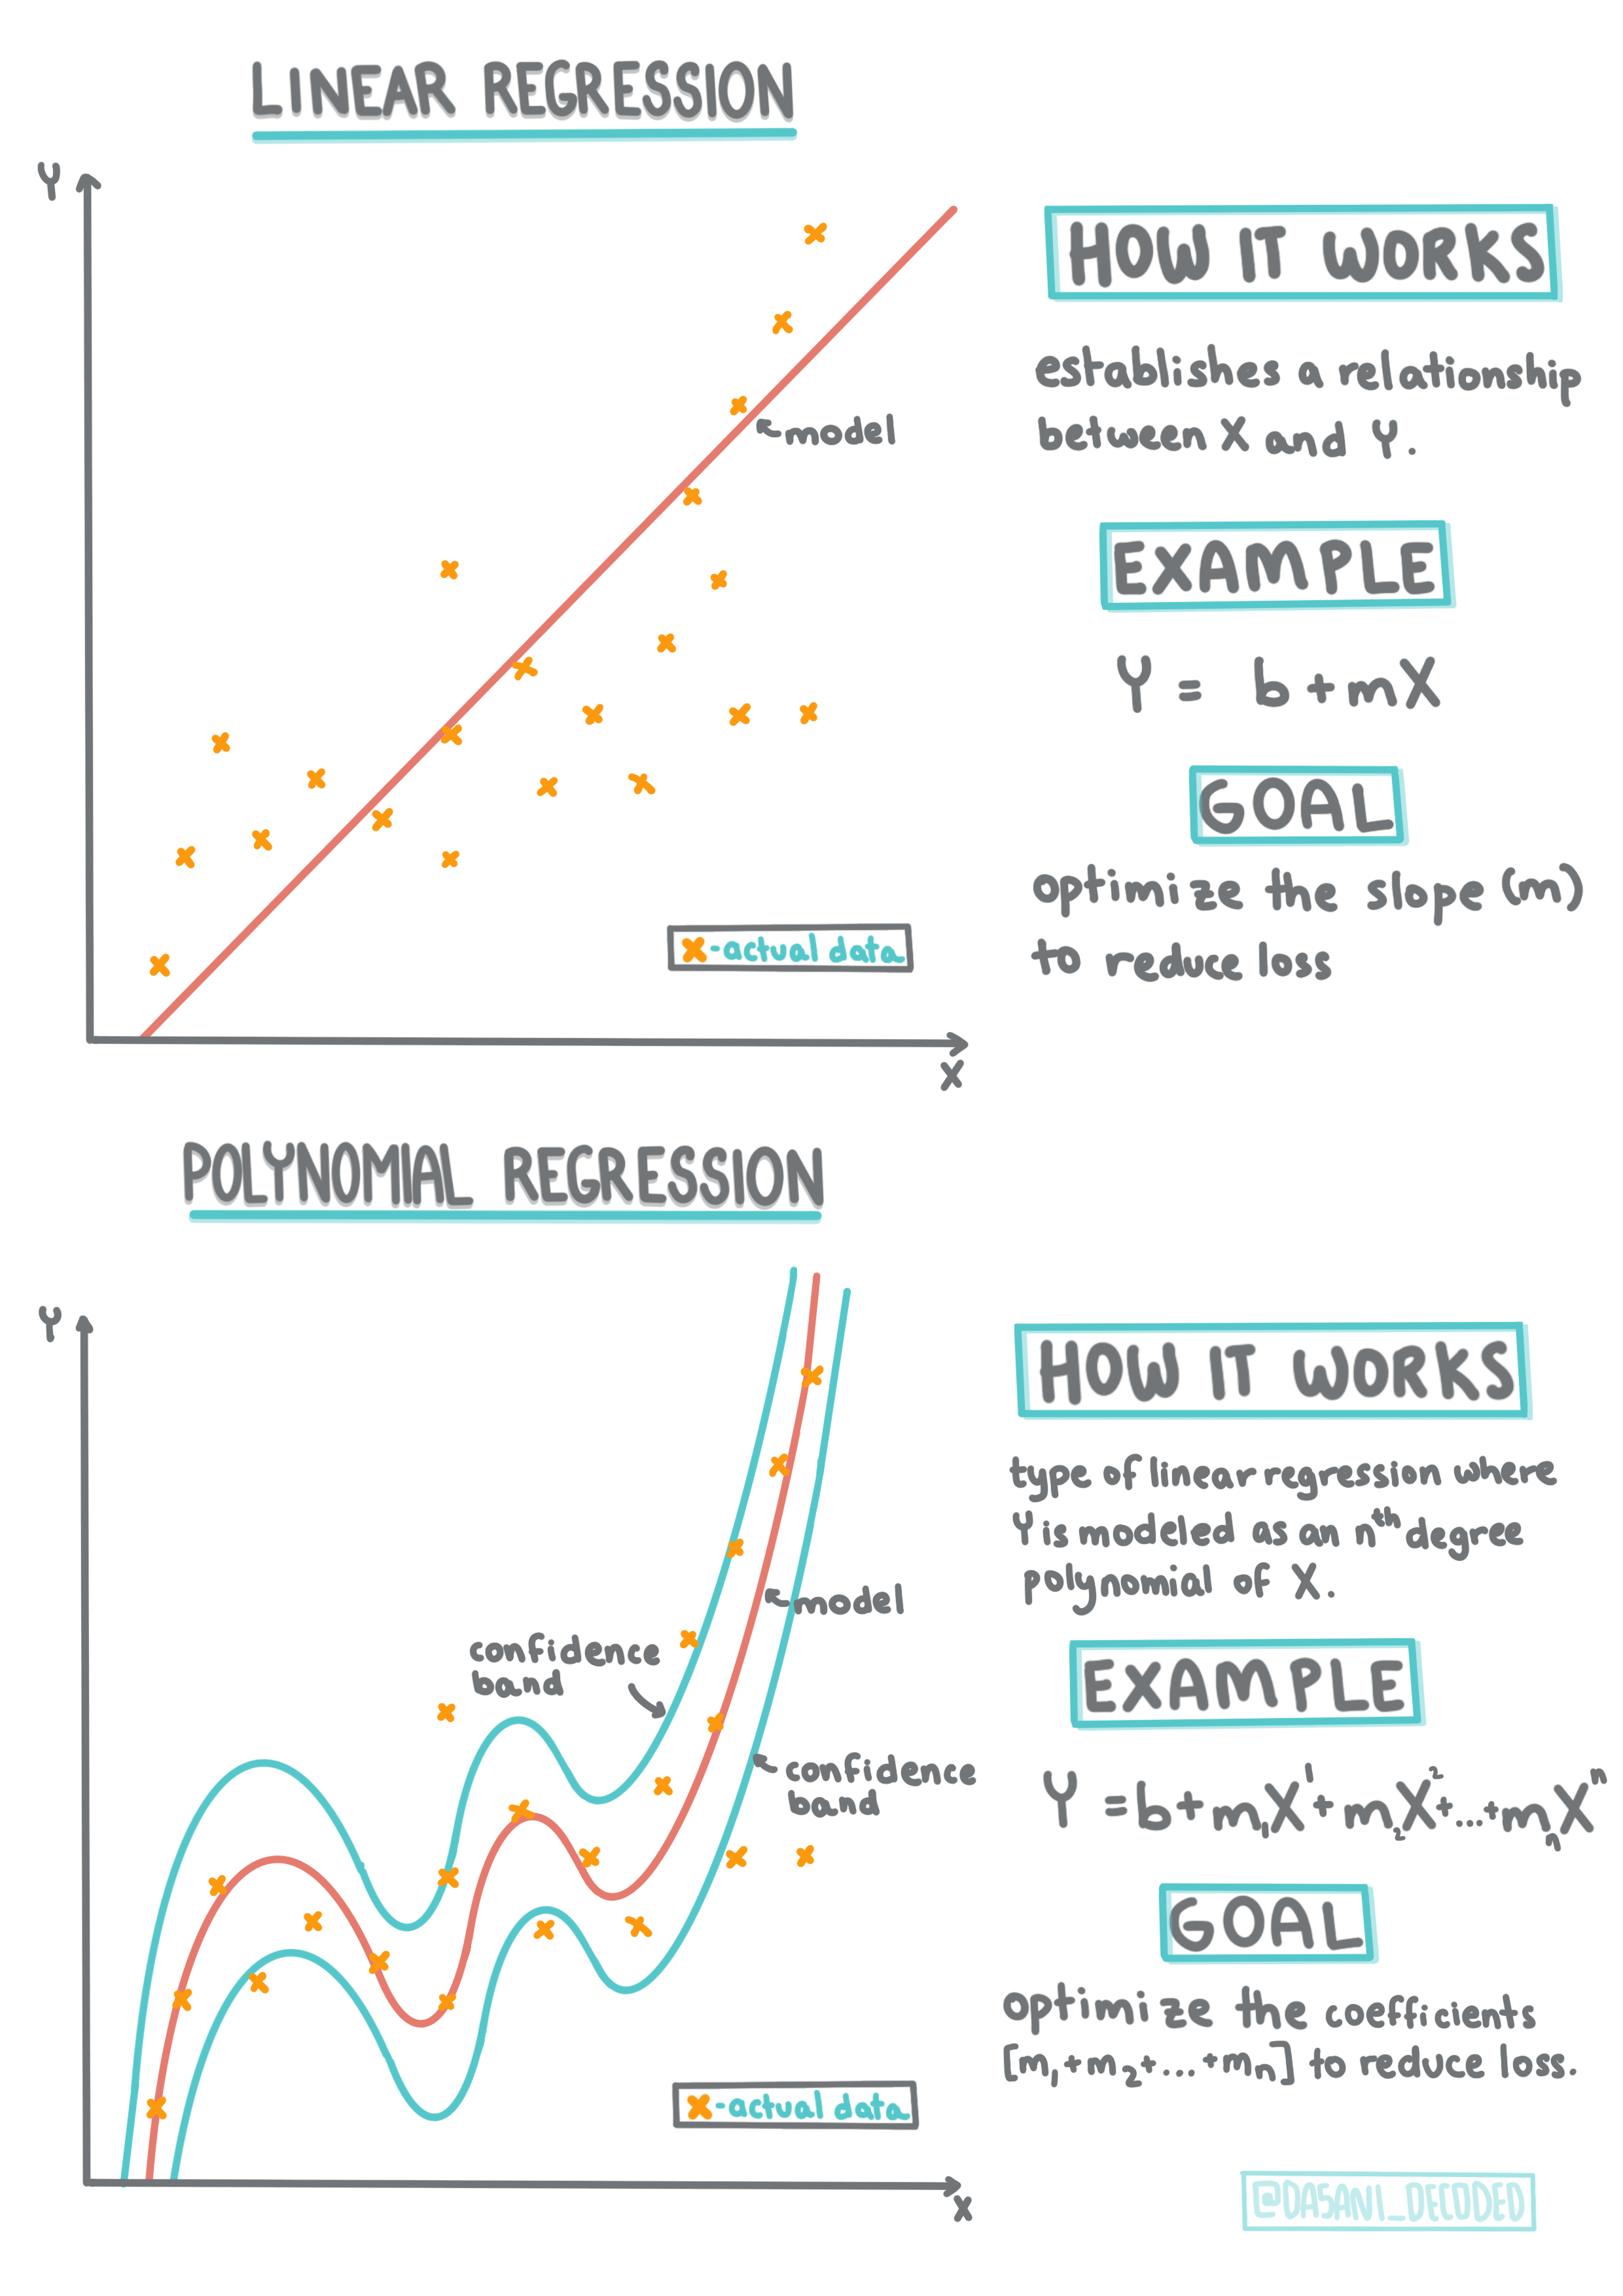 LINEAR REGRESSION
Y
model
x-actual data
X
HOW IT WORKS
establishes a relationship
between X and Y.
EXAMPLE
Y = b+mX
GOAL
optimize the slope (m)
to reduce loss
POLYNOMIAL REGRESSION
Y
model
confidence
band
confidence
band
x-actual data
X
HOW IT WORKS
type of linear regression where
Y is modeled as an nth degree
polynomial of X.
EXAMPLE
Y = b+m₁X¹+m₂X²+...+mₙXⁿ
GOAL
optimize the coefficients
[m₁+m₂+...+mₙ] to reduce loss.
@DASANI_DECODED